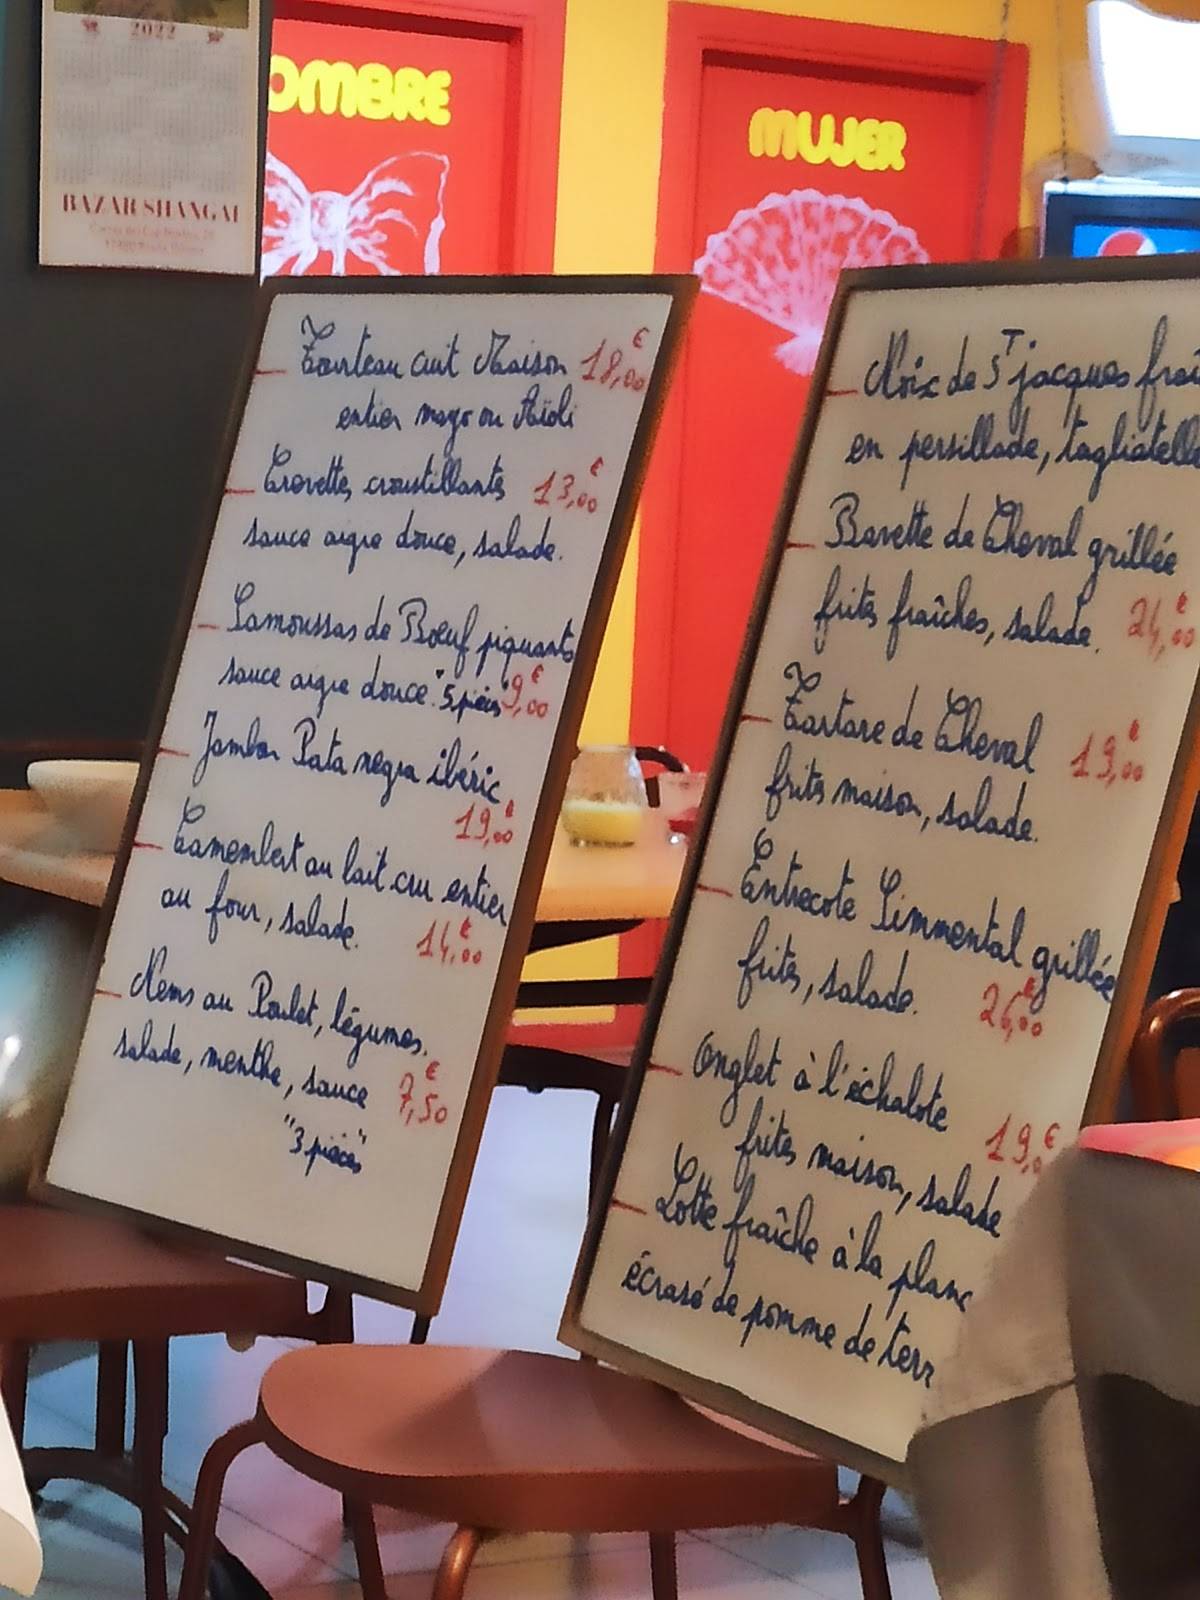 2022
BAZAR SHANGAI
OMBRE
MUJER
Tourteau cuit Maison 18,00€
entier mayo ou Aïoli
Crevettes croustillantes 13,00€
sauce aigre douce, salade.
Samoussas de Bœuf piquants
sauce aigre douce "5 pièces" 9,00€
Jambon Pata negra ibéric
19,00€
Camembert au lait cru entier
au four, salade. 14,00€
Nems au Poulet, légumes,
salade, menthe, sauce 7,50€
"3 pièces"
Noix de St jacques fraî
en persillade, tagliatelle
Bavette de Cheval grillée
frites fraîches, salade. 24,00€
Tartare de Cheval 19,00€
frites maison, salade.
Entrecote Simmental grillée
frites, salade. 26,00€
Onglet à l'échalote
frites maison, salade 19,0€
Lotte fraîche à la planc
écrasé de pomme de terr